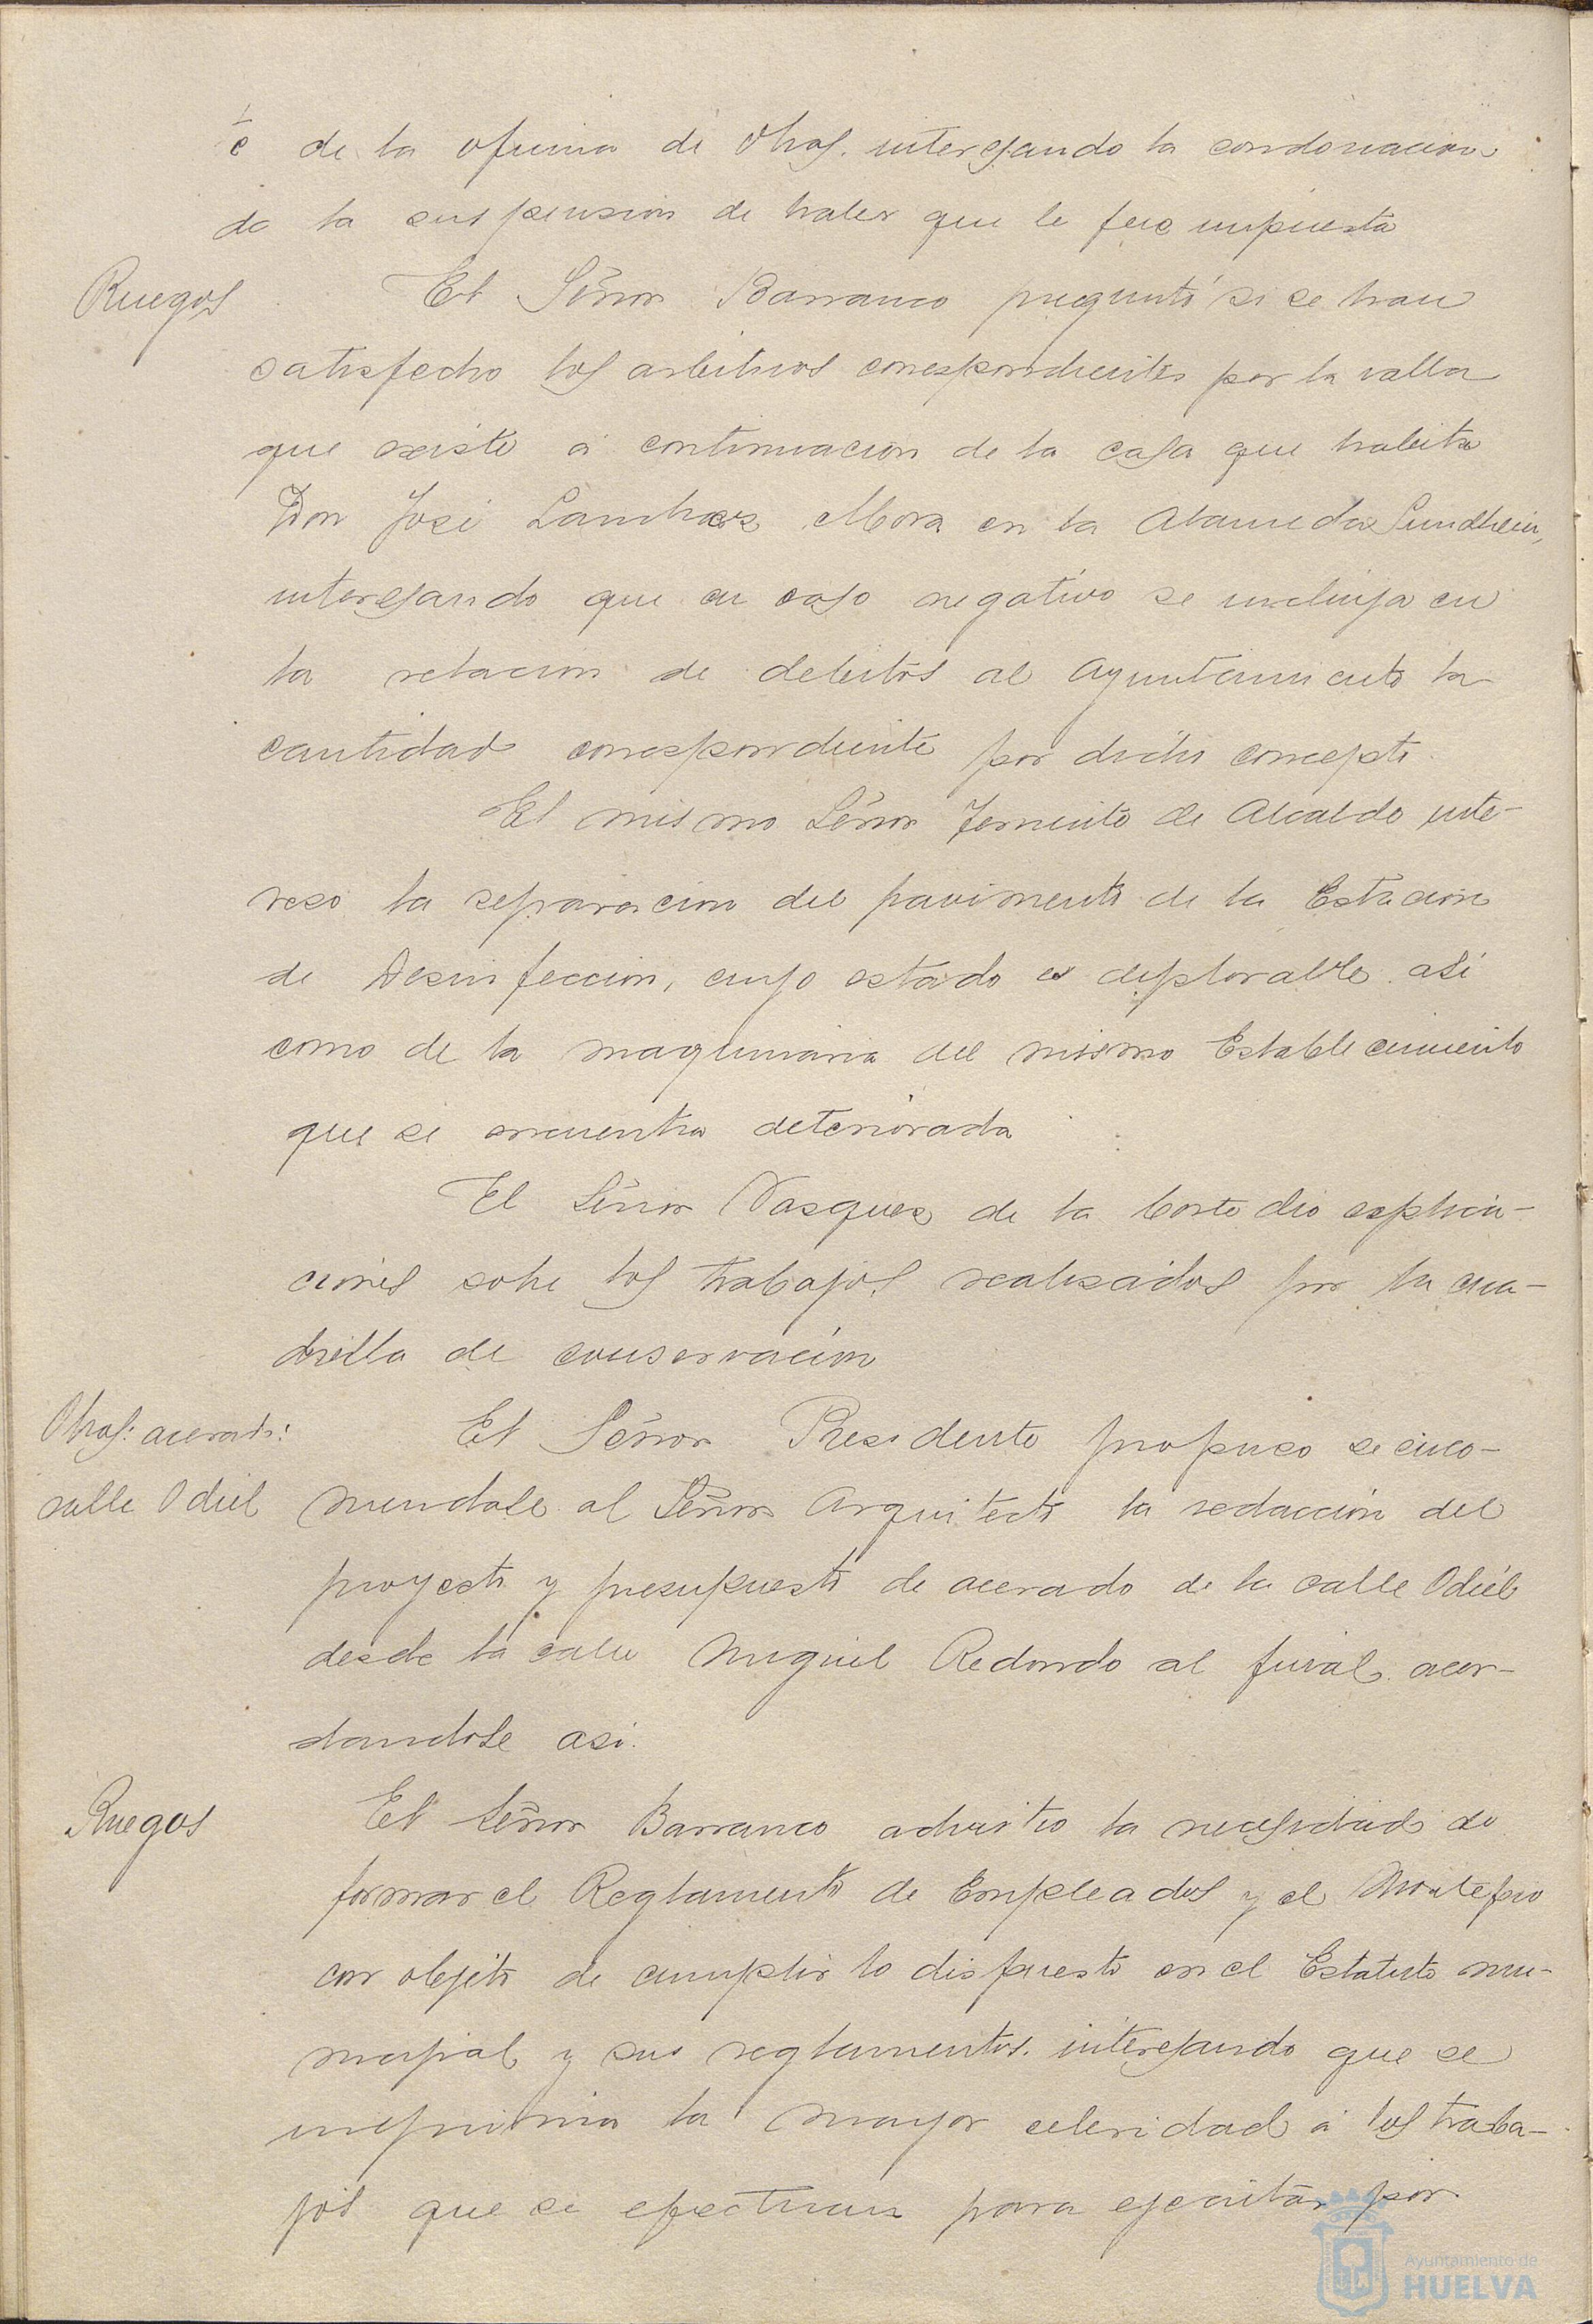 é de la oficina de Obras. interesando la condonacion
de la suspension de haber que le fue impuesta
Ruegos
El Señor Barranco preguntó si se han
satisfecho los arbitrios correspondientes por la valla
que existe á continuacion de la casa que habita
Don José Mora en la Alameda Sundheim,
interesando que en caso negativo se incluya en
la relacion de debitos al Ayuntamiento la
cantidad correspondiente por dicho concepto.
El mismo Señor Teniente de Alcalde inte-
reso la reparacion del pavimento de la Estacion
de Desinfeccion, cuyo estado es deplorable. asi
como de la maquinaria del mismo Establecimiento
que se encuentra deteriorada
El Señor Vasquez de la Corte dio explica-
ciones sobre los trabajos realizados por la cua-
drilla de conservacion
Obras: acerado:
calle Odiel
El Señor Presidente propuso se enco-
mendase al Señor Arquitecto la redaccion del
proyecto y presupuesto de acerado de la calle Odiel
desde la calle Miguel Redondo al final. acor-
dandose asi.
Ruegos
El Señor Barranco advirtio la necesidad de
formar el Reglamento de Empleados y el Montepio
con objeto de cumplir lo dispuesto en el Estatuto mu-
nicipal y sus reglamentos. interesando que se
imprima la mayor celeridad á los traba-
jos que se efectuan para ejecutar por
Ayuntamiento de
HUELVA